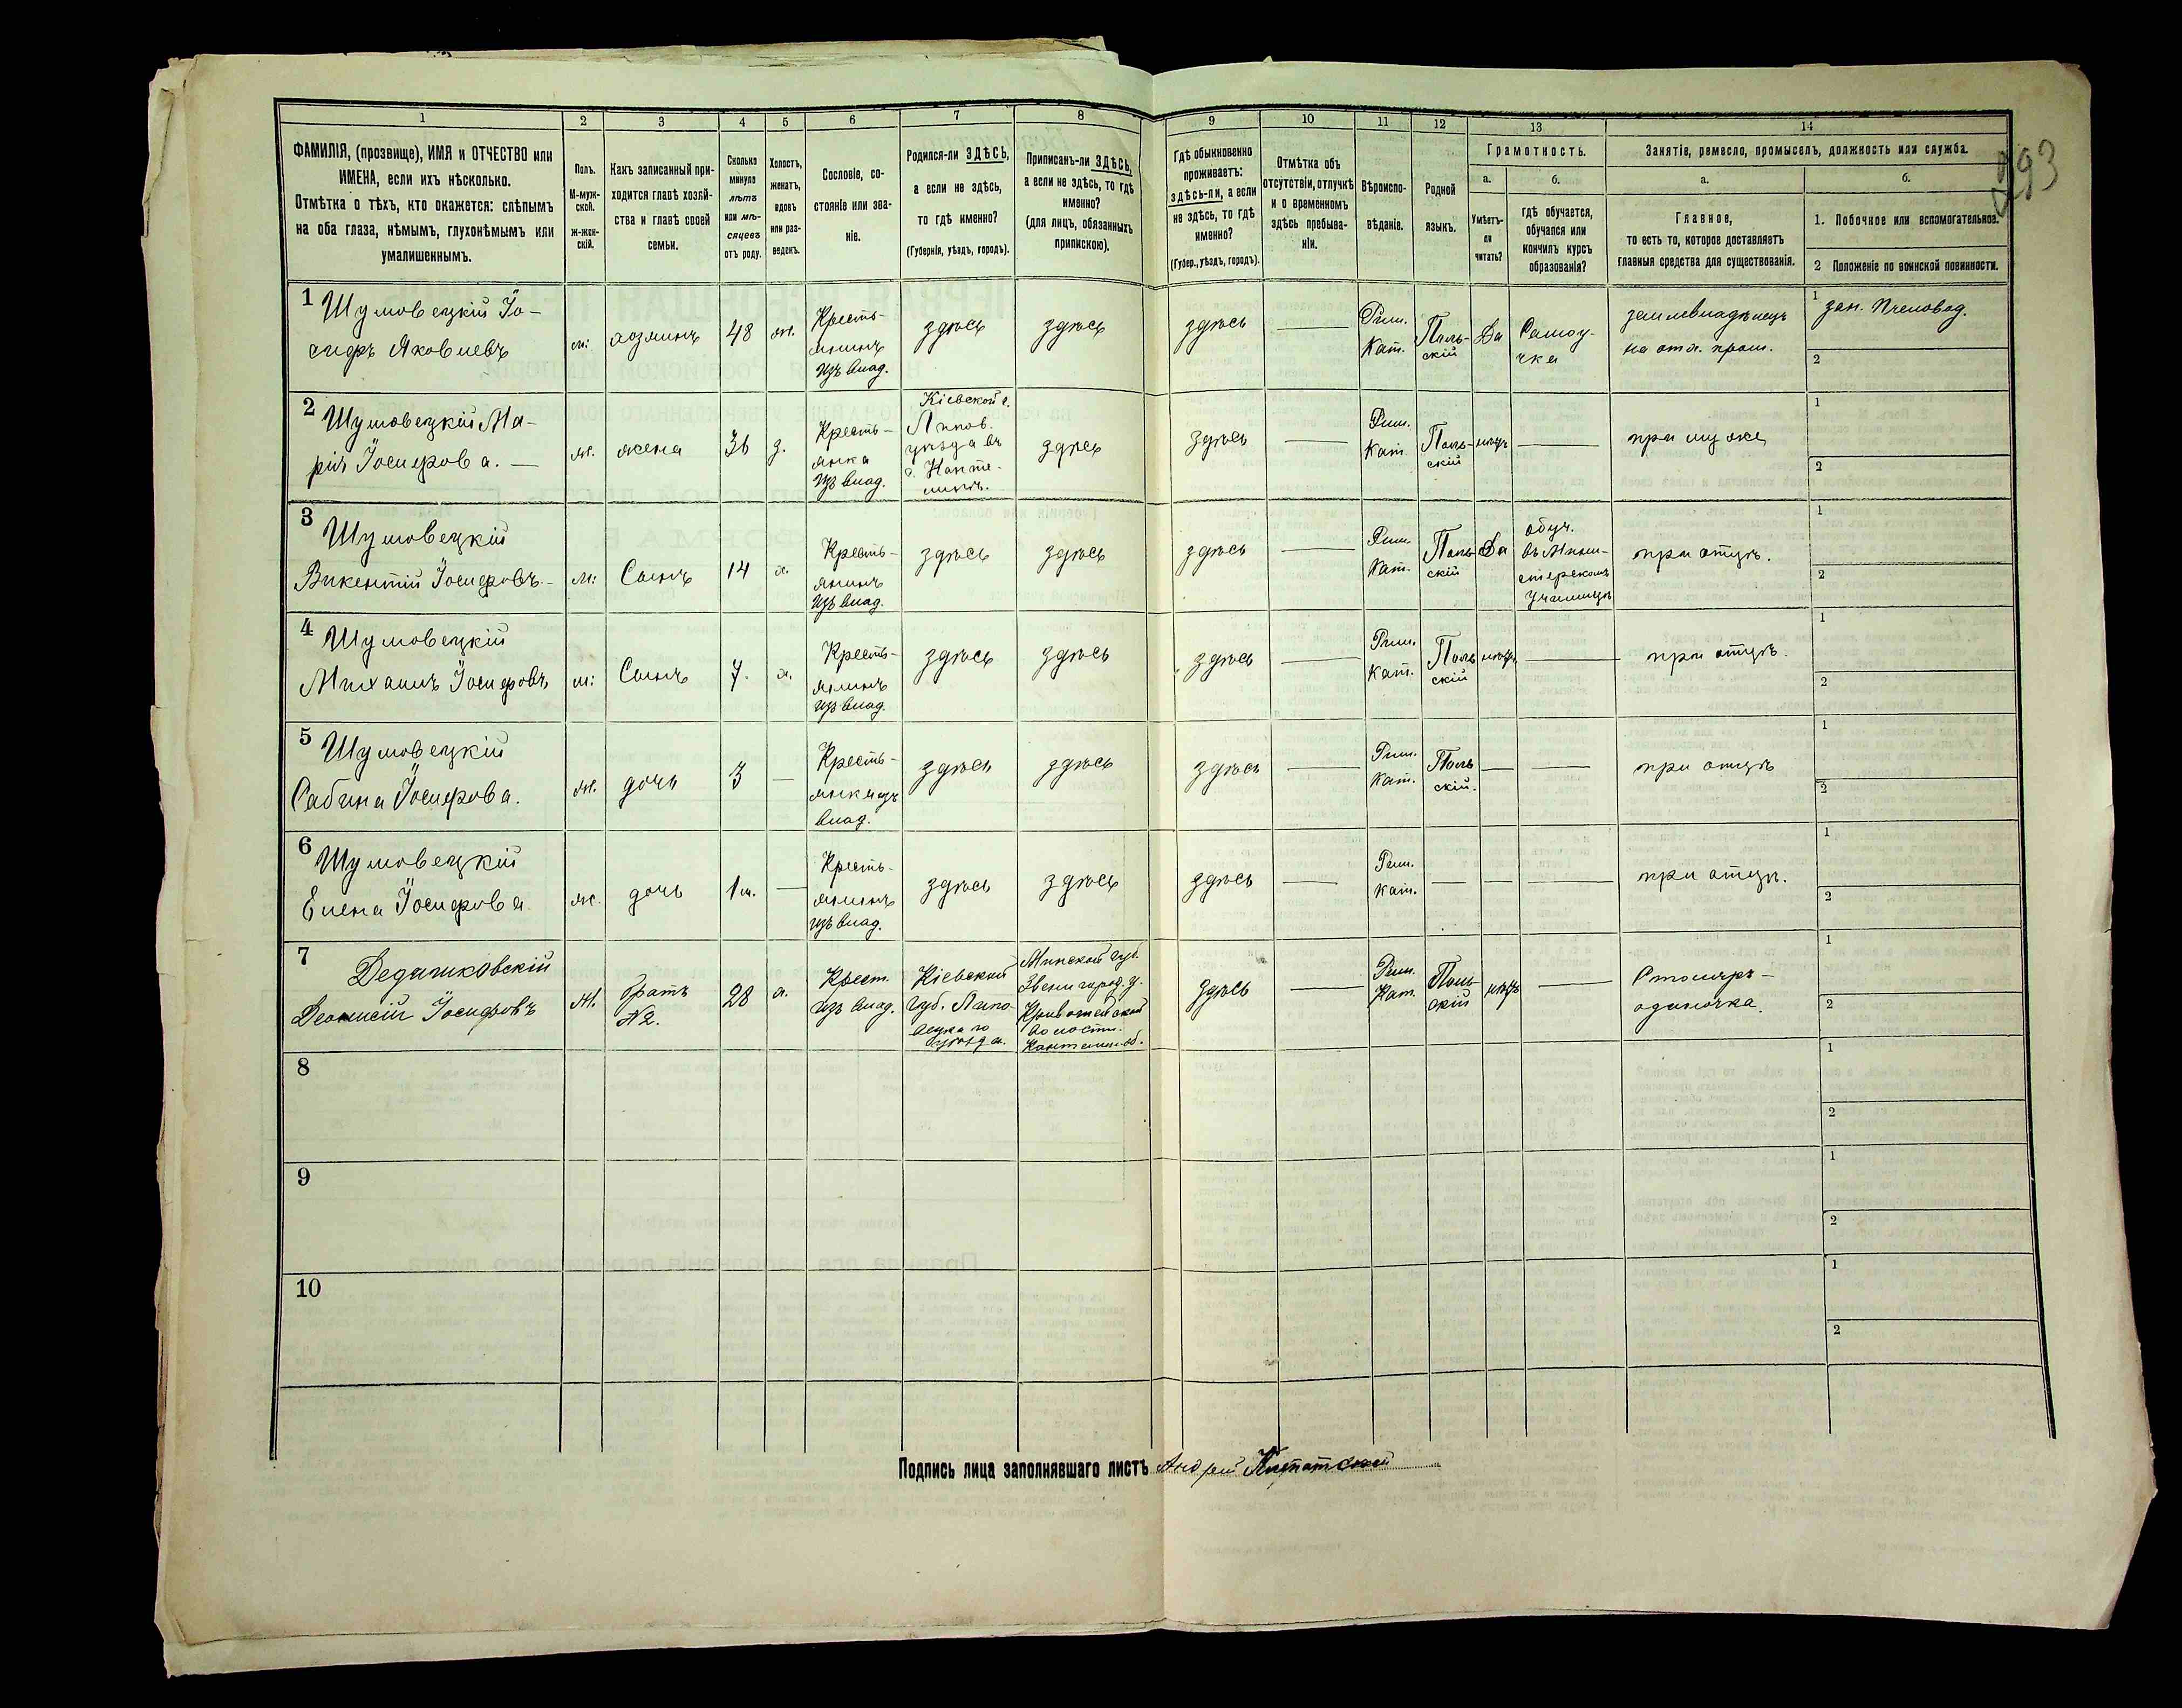 293
1 2 3 4 5 6 7 8 9 10 11 12 13 14
ФАМИЛІЯ, (прозвище), ИМЯ и ОТЧЕСТВО или
ИМЕНА, если ихъ нѣсколько.
Отмѣтка о тѣхъ, кто окажется: слѣпымъ
на оба глаза, нѣмымъ, глухонѣмымъ или
умалишеннымъ.
Полъ.
М-муж-
ской.
Ж-жен-
скій.
Какъ записанный при-
ходится главѣ хозяй-
ства и главѣ своей
семьи.
Сколько
минуло
лѣтъ
или мѣ-
сяцевъ
отъ роду.
Холостъ,
женатъ,
вдовъ
или раз-
веденъ.
Сословіе, со-
стояніе или зва-
ніе.
Родился-ли ЗДѢСЬ,
а если не здѣсь,
то гдѣ именно?
(Губернія, уѣздъ, городъ).
Приписанъ-ли ЗДѢСЬ,
а если не здѣсь, то гдѣ
именно?
(для лицъ, обязанныхъ
припискою).
Гдѣ обыкновенно
проживаетъ:
здѣсь-ли, а если
не здѣсь, то гдѣ
именно?
(Губер., уѣздъ, городъ).
Отмѣтка объ
отсутствіи, отлучкѣ
и о временномъ
здѣсь пребыва-
ніи.
Вѣроиспо-
вѣданіе.
Родной
языкъ.
Грамотность.
а.
Умѣетъ-
ли
читать?
б.
гдѣ обучается,
обучался или
кончилъ курсъ
образованія?
Занятіе, ремесло, промыселъ, должность или служба.
а.
Главное,
то есть то, которое доставляетъ
главныя средства для существованія.
б.
1. Побочное или вспомогательное.
2 Положеніе по воинской повинности.
1 Шумовецкій Іо-
сифъ Яковлевъ
м:
хозяинъ
48
ж.
Кресть-
янинъ
изъ влад.
здѣсь
здѣсь
здѣсь
Рим.
Кат.
Поль-
скій
Да
Самоу-
чка
землевладѣлецъ
1 зан. Пчеловод.
2
2 Шумовецкій Ма-
рія Іосифова. —
ж.
жена
36
з.
Кресть-
янка
Изъ влад.
Кіевской г.
Липов.
уѣзда въ
здѣсь
здѣсь
Рим.
Кат.
Поль-
скій
нѣтъ
при мужѣ
1
2
3 Шумовецкій
Викентій Іосифовъ
м:
Сынъ
14
х.
Кресть-
янинъ
Изъ влад.
здѣсь
здѣсь
здѣсь
Рим.
Кат.
Поль-
скій
Да
обуч.
въ Мини-
стерскомъ
училищѣ
при отцѣ.
1
2
4 Шумовецкій
Михаилъ Іосифовъ
м:
Сынъ
7.
х.
Кресть-
янинъ
изъ влад.
здѣсь
здѣсь
здѣсь
Рим.
Кат.
Поль
скій
нѣтъ
при отцѣ.
1
2
5 Шумовецкій
Сабина Іосифова.
ж.
дочь
3
Кресть-
янка изъ
влад.
здѣсь
здѣсь
здѣсь
Рим.
Кат.
Поль
скій.
при отцѣ
1
2
6 Шумовецкій
Елена Іосифова
ж.
дочь
1 м.
Кресть-
янинъ
изъ влад.
здѣсь
здѣсь
здѣсь
Рим.
Кат.
при отцѣ.
1
2
7
Іосифовъ
М.
братъ
№2.
28
х.
Крест.
Изъ влад.
Кіевской
губ. Липо-
вецкаго
уѣзда.
губ.
Звенигород. у.
волости.
здѣсь
Рим.
Кат.
Поль
скій
нѣтъ
Столяръ-
одиночка.
1
2
8
1
2
9
1
2
10
1
2
Подпись лица заполнявшаго листъ Андрей